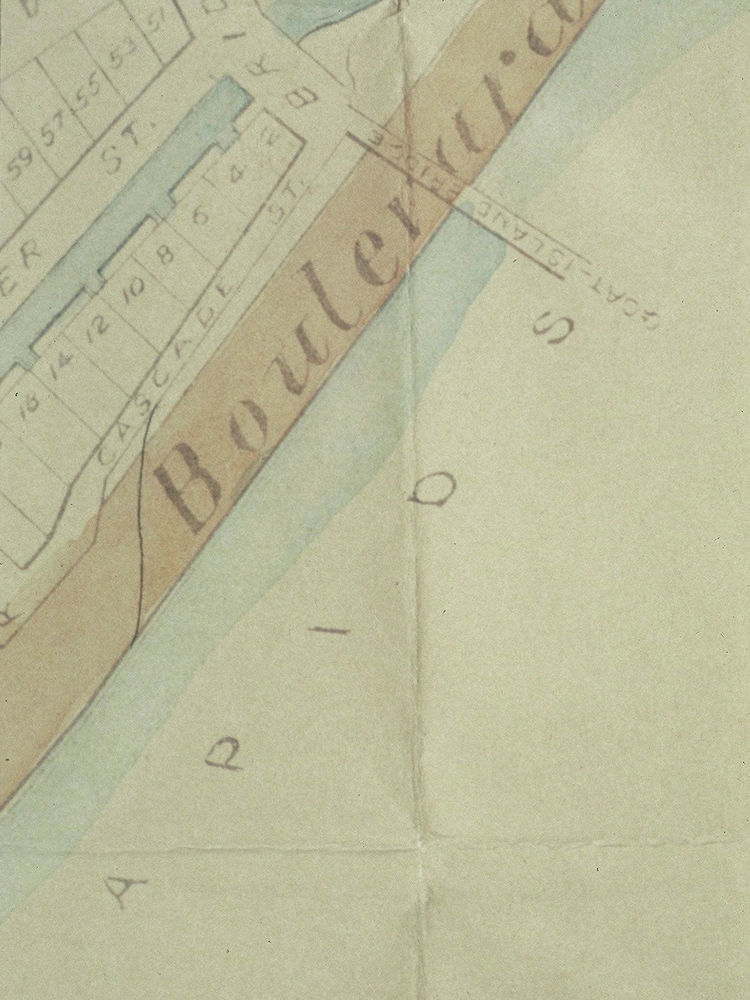 51
53
55
57
59
ST.
ER
BRID
2
4
6
8
10
12
14
16
CASCADE ST.
Boulevard
GOAT-ISLAND BRIDGE
R
A P I D S